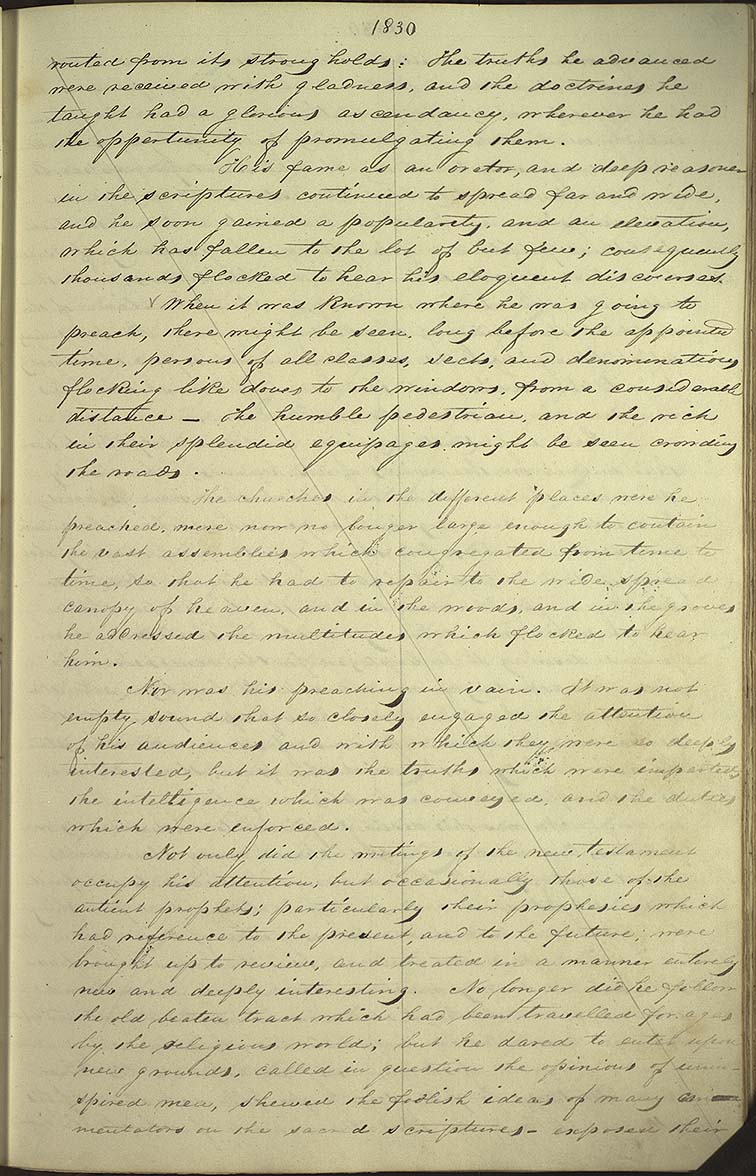 1830
routed from its strong holds: The truths he advanced
were received with gladness, and the doctrines he
taught had a glorious ascendancy, wherever he had
the opportunity of promulgating them.
His fame as an orator, and deep reasoner
in the scriptures continued to spread far and wide,
and he soon gained a popularity, and an elevation,
which has fallen to the lot of but few; consequently
thousands flocked to hear his eloquent discourses.
When it was known where he was going to
preach, there might be seen, long before the appointed
time, persons of all classes, sects, and denominations
flocking like doves to the windows, from a considerable
distance — The humble pedestrian, and the rich
in their splendid equipages might be seen crowding
the roads.
The churches in the different places were he
preached, were now no longer large enough to contain
the vast assemblies which congregated from time to
time, so that he had to repair to the wide spread
canopy of heaven, and in the woods, and in the groves
he addressed the multitudes which flocked to hear
him.
Nor was his preaching in vain. It was not
empty sound that so closely engaged the attention
of his audiences and with which they were so deeply
interested, but it was the truths which were imparted,
the intelligence which was conveyed, and the duties
which were enforced.
Not only did the writings of the new testament
occupy his attention, but occasionally those of the
antient prophets; particularly their prophesies which
had reference to the present, and to the future; were
brought up to review, and treated in a manner entirely
new and deeply interesting. No longer did he follow
the old beaten tract which had been travelled for ages
by the religious world; but he dared to enter upon
new grounds, called in question the opinions of unin-
spired men, shewed the foolish ideas of many com-
mentators on the sacred scriptures — exposed their